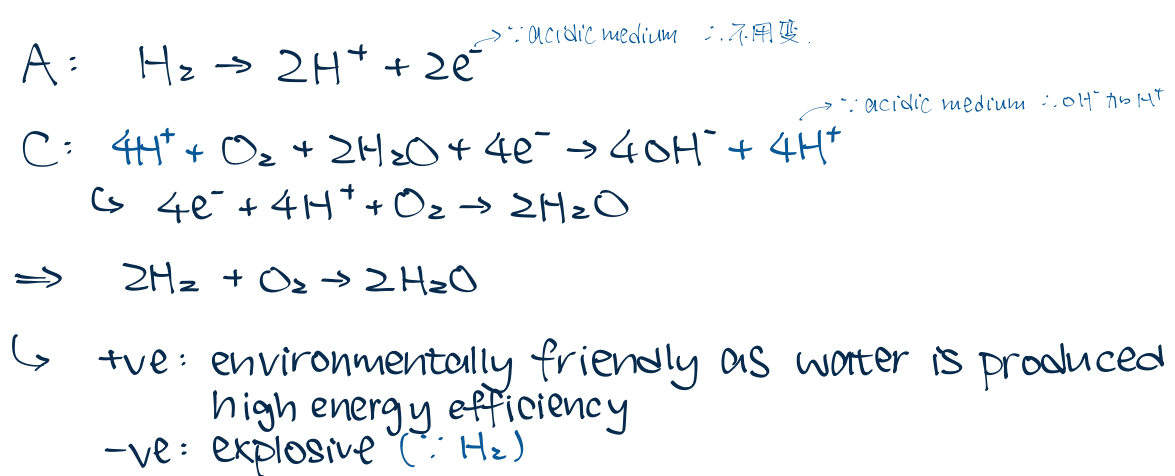 ∵ acidic medium ∴ 不用变.
A: H₂ → 2H⁺ + 2e⁻
∵ acidic medium ∴ OH⁻ 加 H⁺
C: 4H⁺ + O₂ + 2H₂O + 4e⁻ → 4OH⁻ + 4H⁺
↪ 4e⁻ + 4H⁺ + O₂ → 2H₂O
⇒ 2H₂ + O₂ → 2H₂O
↪ +ve: environmentally friendly as water is produced
high energy efficiency
-ve: explosive (∵ H₂)